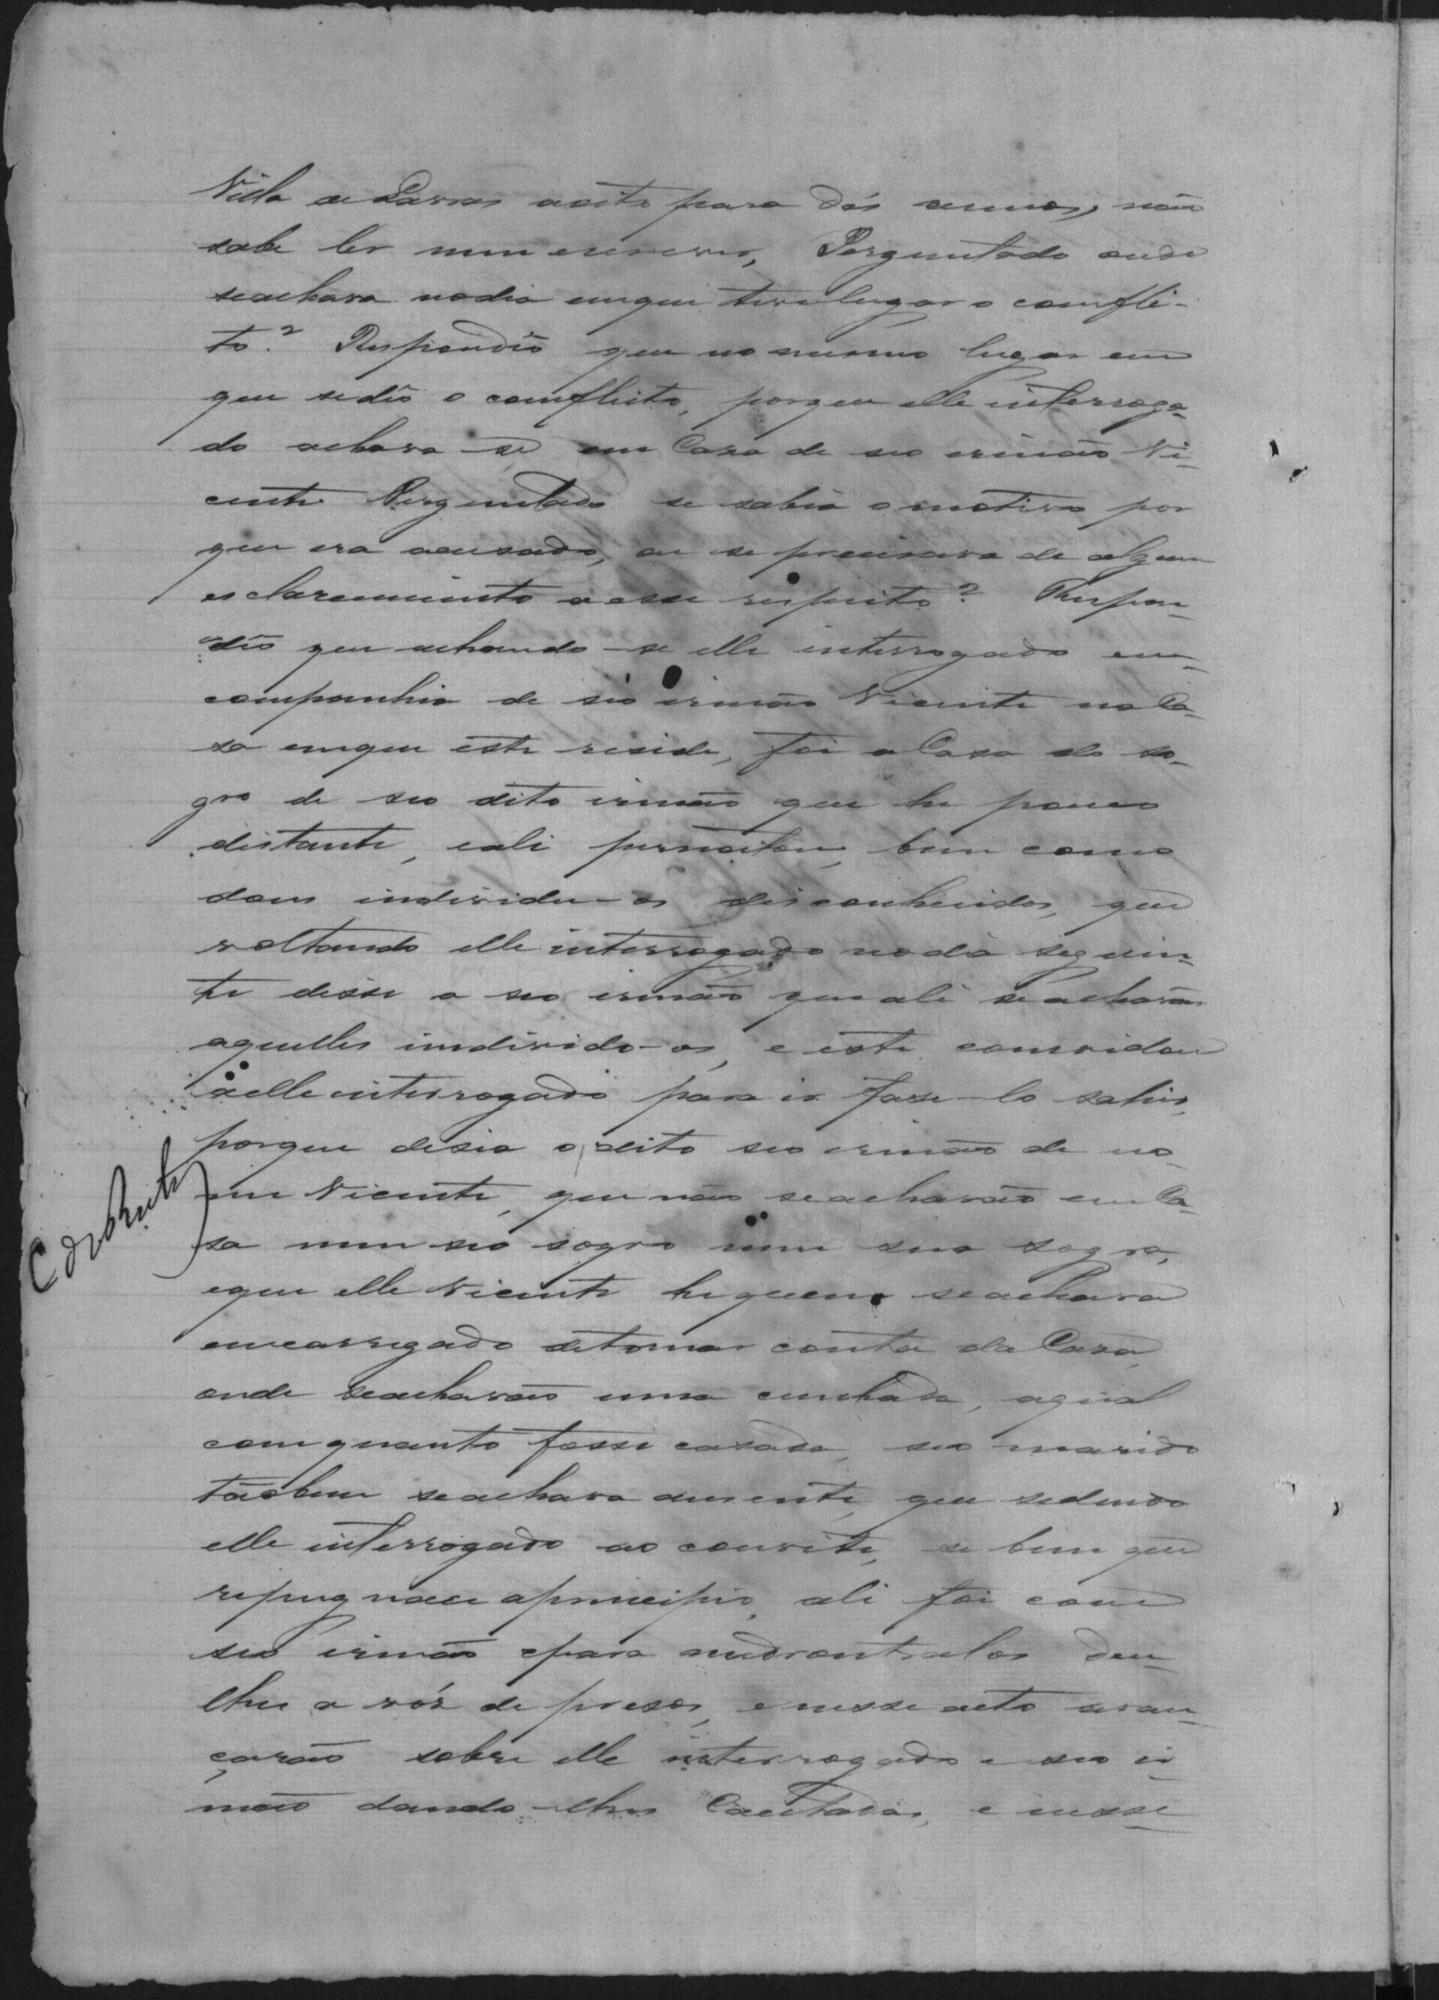 Villa de Lavras a oito para dés annos, não
sabe ler nem escrever, Perguntado onde
seachava nodia emque teve lugar o comfli-
to? Respondêo que no mesmo lugar em
que sedêo o comflicto, porque elle interroga-
do achava-se em Casa de seo irmão Vi-
cente Perguntado se sabia o motivo por
que era acusado, ou se precisava de algum
esclarecimento a esse respeito? Respon-
dêo que achando-se elle interrogado em
companhia de seo irmão Vicente na Ca-
sa emque este reside, foi a Casa do so-
gro de seo dito irmão que he pouco
distante, eali pernoitou, bem como
dous individu-os disconhecidos, que
voltando elle interrogado nodia seguin-
te disse a seo irmão que ali se achavão
aquelles individo-os, e este comvidou
aelle interrogado para ir faze-lo sahir,
porque desia o dito seo irmão de no-
me Vicente, que não seachavão em Ca-
sa nem seo sogro nem sua sogra,
eque elle Vicente he quem seachava
emcarregado detomar conta da Casa,
onde seachavão uma cunhada, aqual
comquanto fosse casada, seo marido
tãobem seachava ausente, que sedendo
elle interrogado ao convite, se bem que
repugnace aprincipio, ali foi com
seo irmão epara amedrontalos deu-
lhes a vóz de presos, e nesse acto avan-
çarão sobre elle interrogado e seo ir-
mão dando-lhes Cacetadas, e nesse